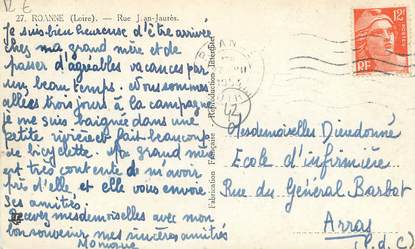 27. ROANNE (Loire). — Rue Jean-Jaurès.
Je suis bien heureuse d'être arrivée
chez ma grand mère et de
passer d'agréables vacances par
un beau temps. Nous sommes
allées trois jours à la campagne
je me suis baignée dans une
petite rivière et fait beaucoup
de bicyclette. Ma grand mère
est très contente de m'avoir
près d'elle et elle vous envoie
ses amitiés.
Recevez mesdemoiselles avec mon
bon souvenir mes sincères amitiés
Monique
Fabrication Française
Reproduction Interdite
12F
POSTES
RF
Mesdemoiselles Dieudonné
Ecole d'infirmière
Rue du Général Barbot
Arras
(P.d.C)